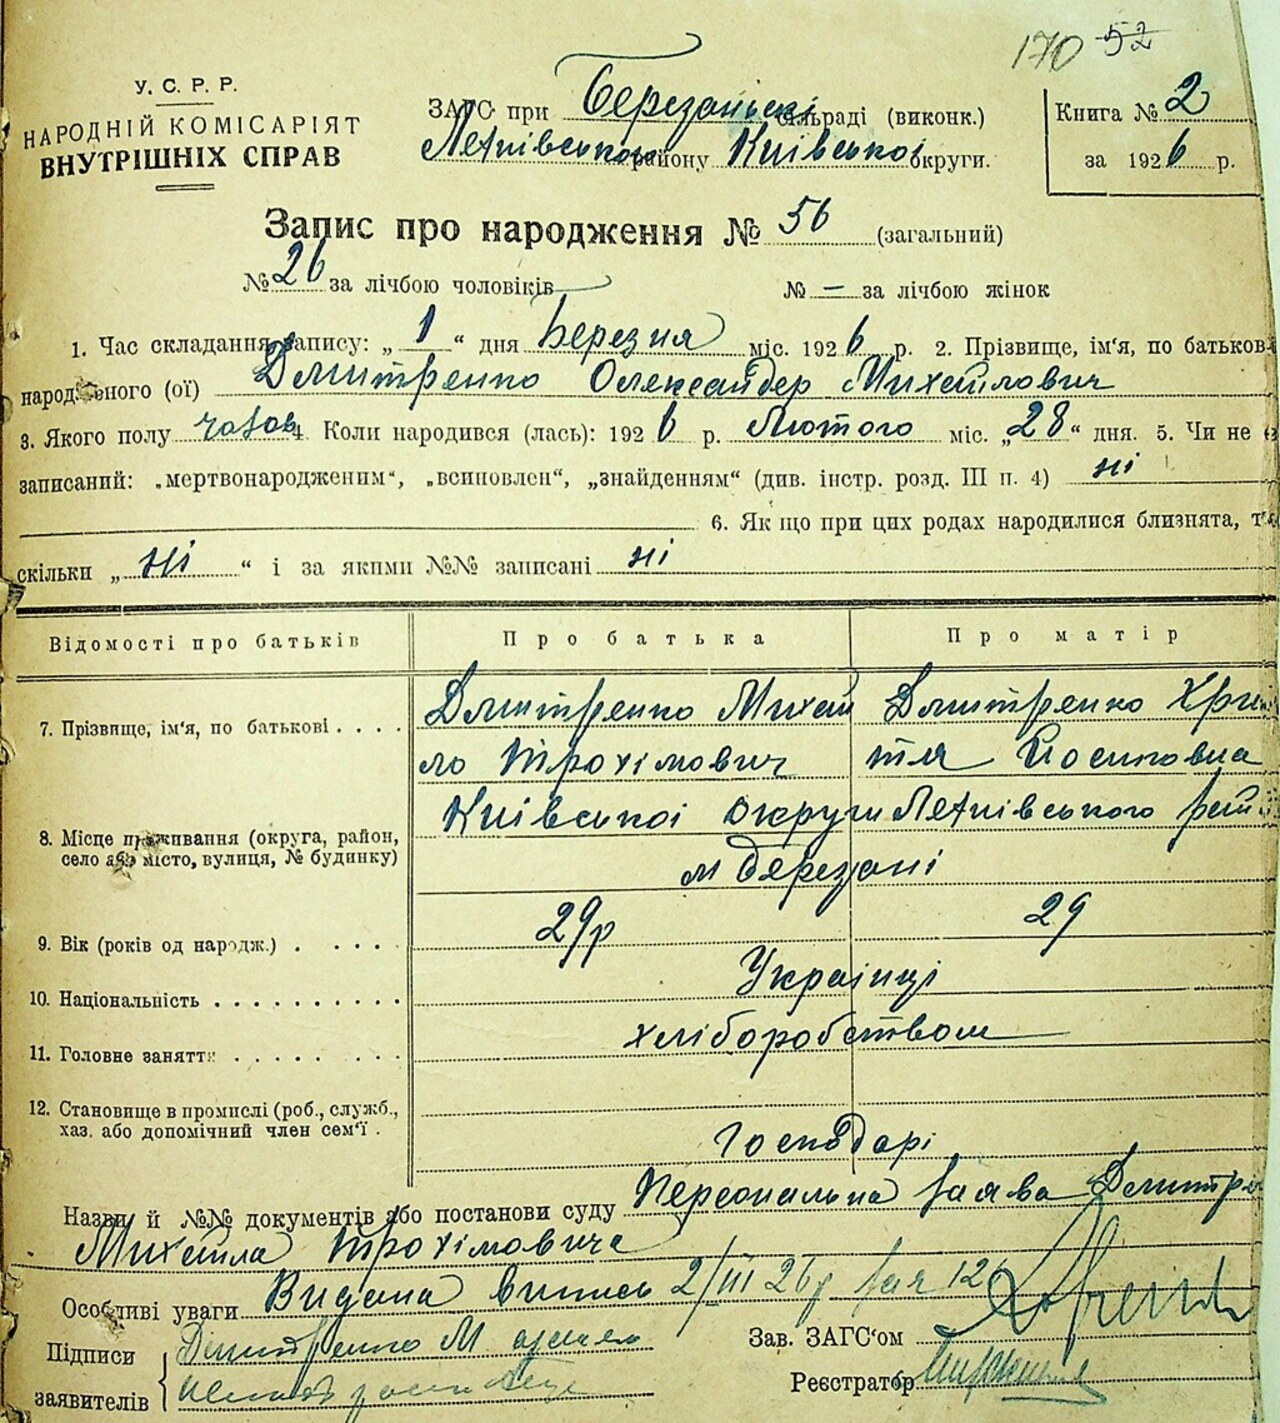 170 52
У. С. Р. Р.
НАРОДНІЙ КОМІСАРІЯТ
ВНУТРІШНІХ СПРАВ
ЗАГС при Березанській сільраді (виконк.)
району Київської округи.
Книга № 2
за 1926 р.
Запис про народження № 56 (загальний)
№ 26 за лічбою чоловіків № — за лічбою жінок
1. Час складання запису: „ 1 “ дня Березня міс. 1926 р. 2. Прізвище, ім‘я, по батьков
народженого (ої) Дмитренко Олександер Михайлович
3. Якого полу чолов 4. Коли народився (лась): 1926 р. Лютого міс. „28“ дня. 5. Чи не
записаний: „мертвонародженим“, „всиновлен“, „знайденням“ (див. інстр. розд. III п. 4) ні
6. Як що при цих родах народилися близнята, т
скільки „ ні “ і за якими №№ записані ні
Відомості про батьків Про батька Про матір
7. Прізвище, ім‘я, по батькові . . . . Дмитренко Михай Дмитренко Хри
ло Трохімович тя Йосиповна
8. Місце проживання (округа, район, Київської округи
село або місто, вулиця, № будинку) м Березані
9. Вік (років од народж.) . . . . . 29р 29
10. Національність . . . . . . . . . . Украінці
11. Головне заняття . . . . . . . . хліборобством
12. Становище в промислі (роб., служб.,
хаз. або допомічний член сем‘ї . Господарі
Назви й №№ документів або постанови суду Персональна заява Дмитре
Михайла Трохімовича
Особливі уваги Видана випись 2/III 26р за № 126
Підписи Дмитренко М
заявителів
Зав. ЗАГС‘ом
Реєстратор